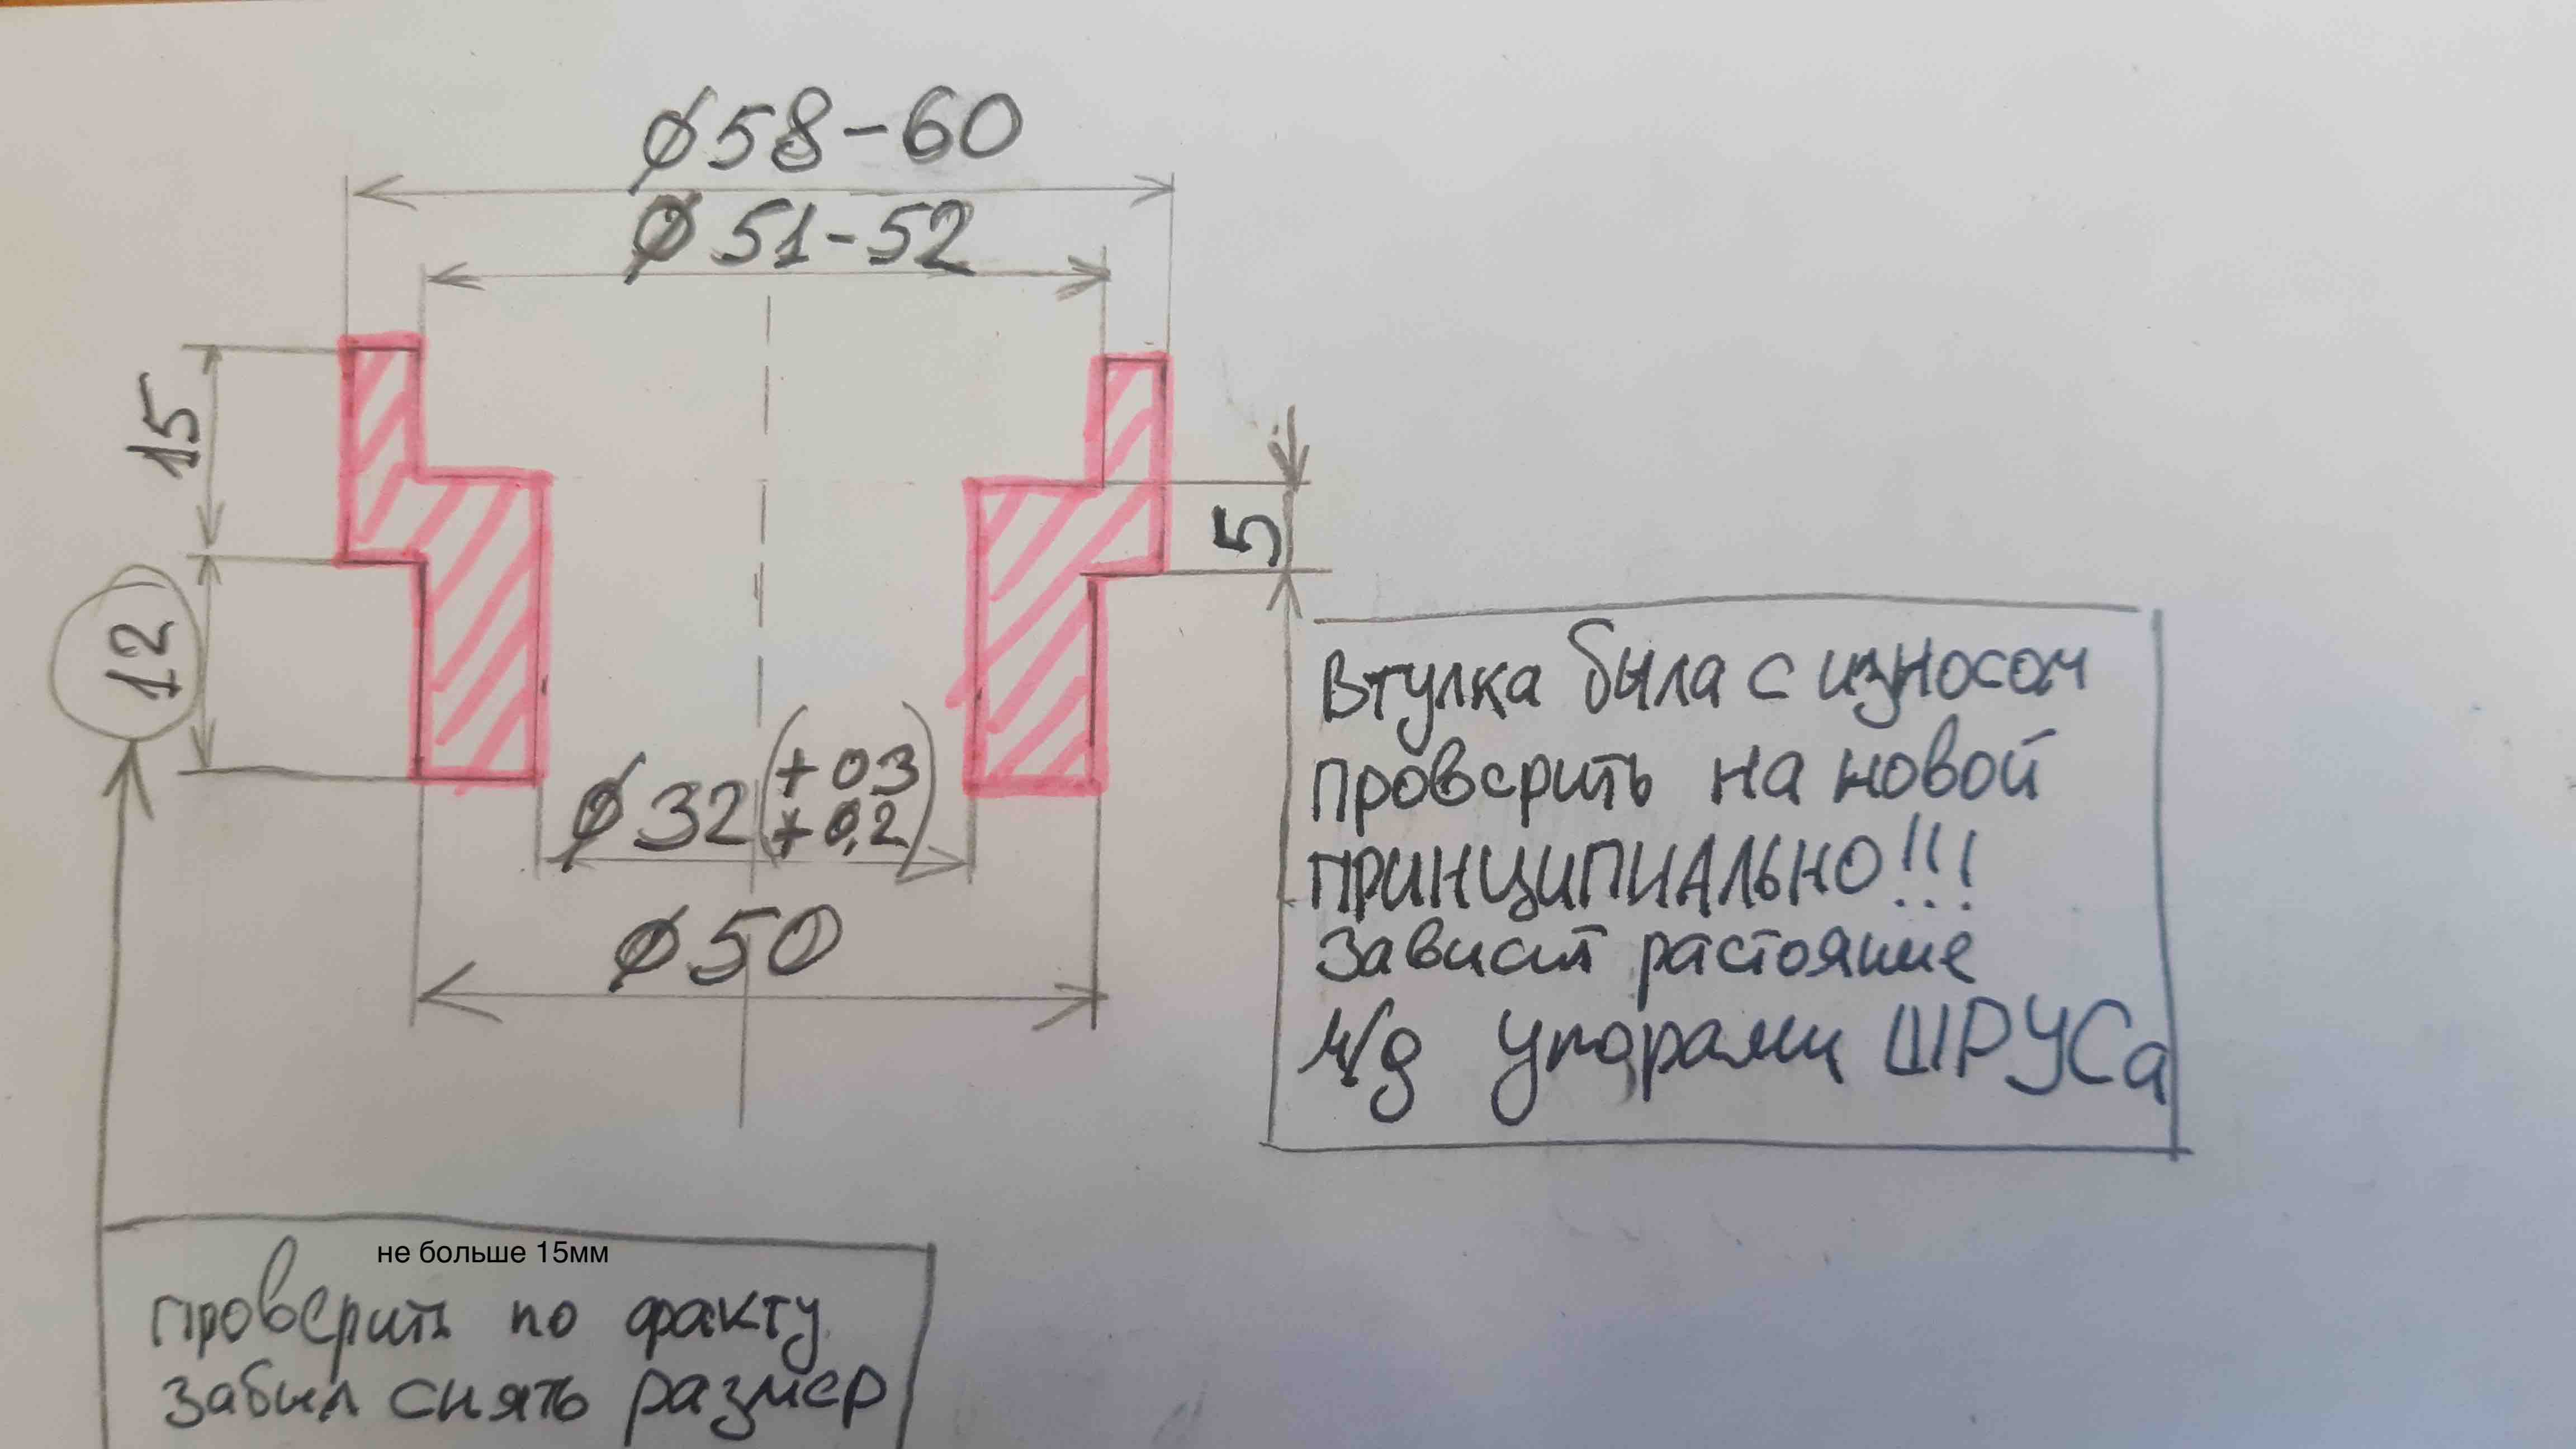 ø58-60
ø51-52
15
5
12
ø32(+03
+0,2)
ø50
Втулка была с износом
проверить на новой
ПРИНЦИПИАЛЬНО!!!
Зависит растояние
м/д упорами ШРУСа
не больше 15мм
проверить по факту
забыл снять размер